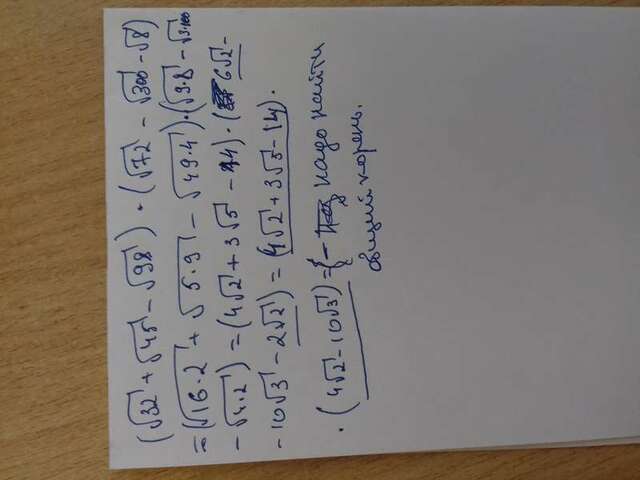 (√32 + √45 - √98) · (√72 - √300 - √8)
= (√16·2 + √5·9 - √49·4) · (√9·8 - √3·100
- √4·2) = (4√2 + 3√5 - 14) · (6√2 -
- 10√3 - 2√2) = (4√2 + 3√5 - 14) ·
· (4√2 - 10√3) = { - надо найти
общий корень.